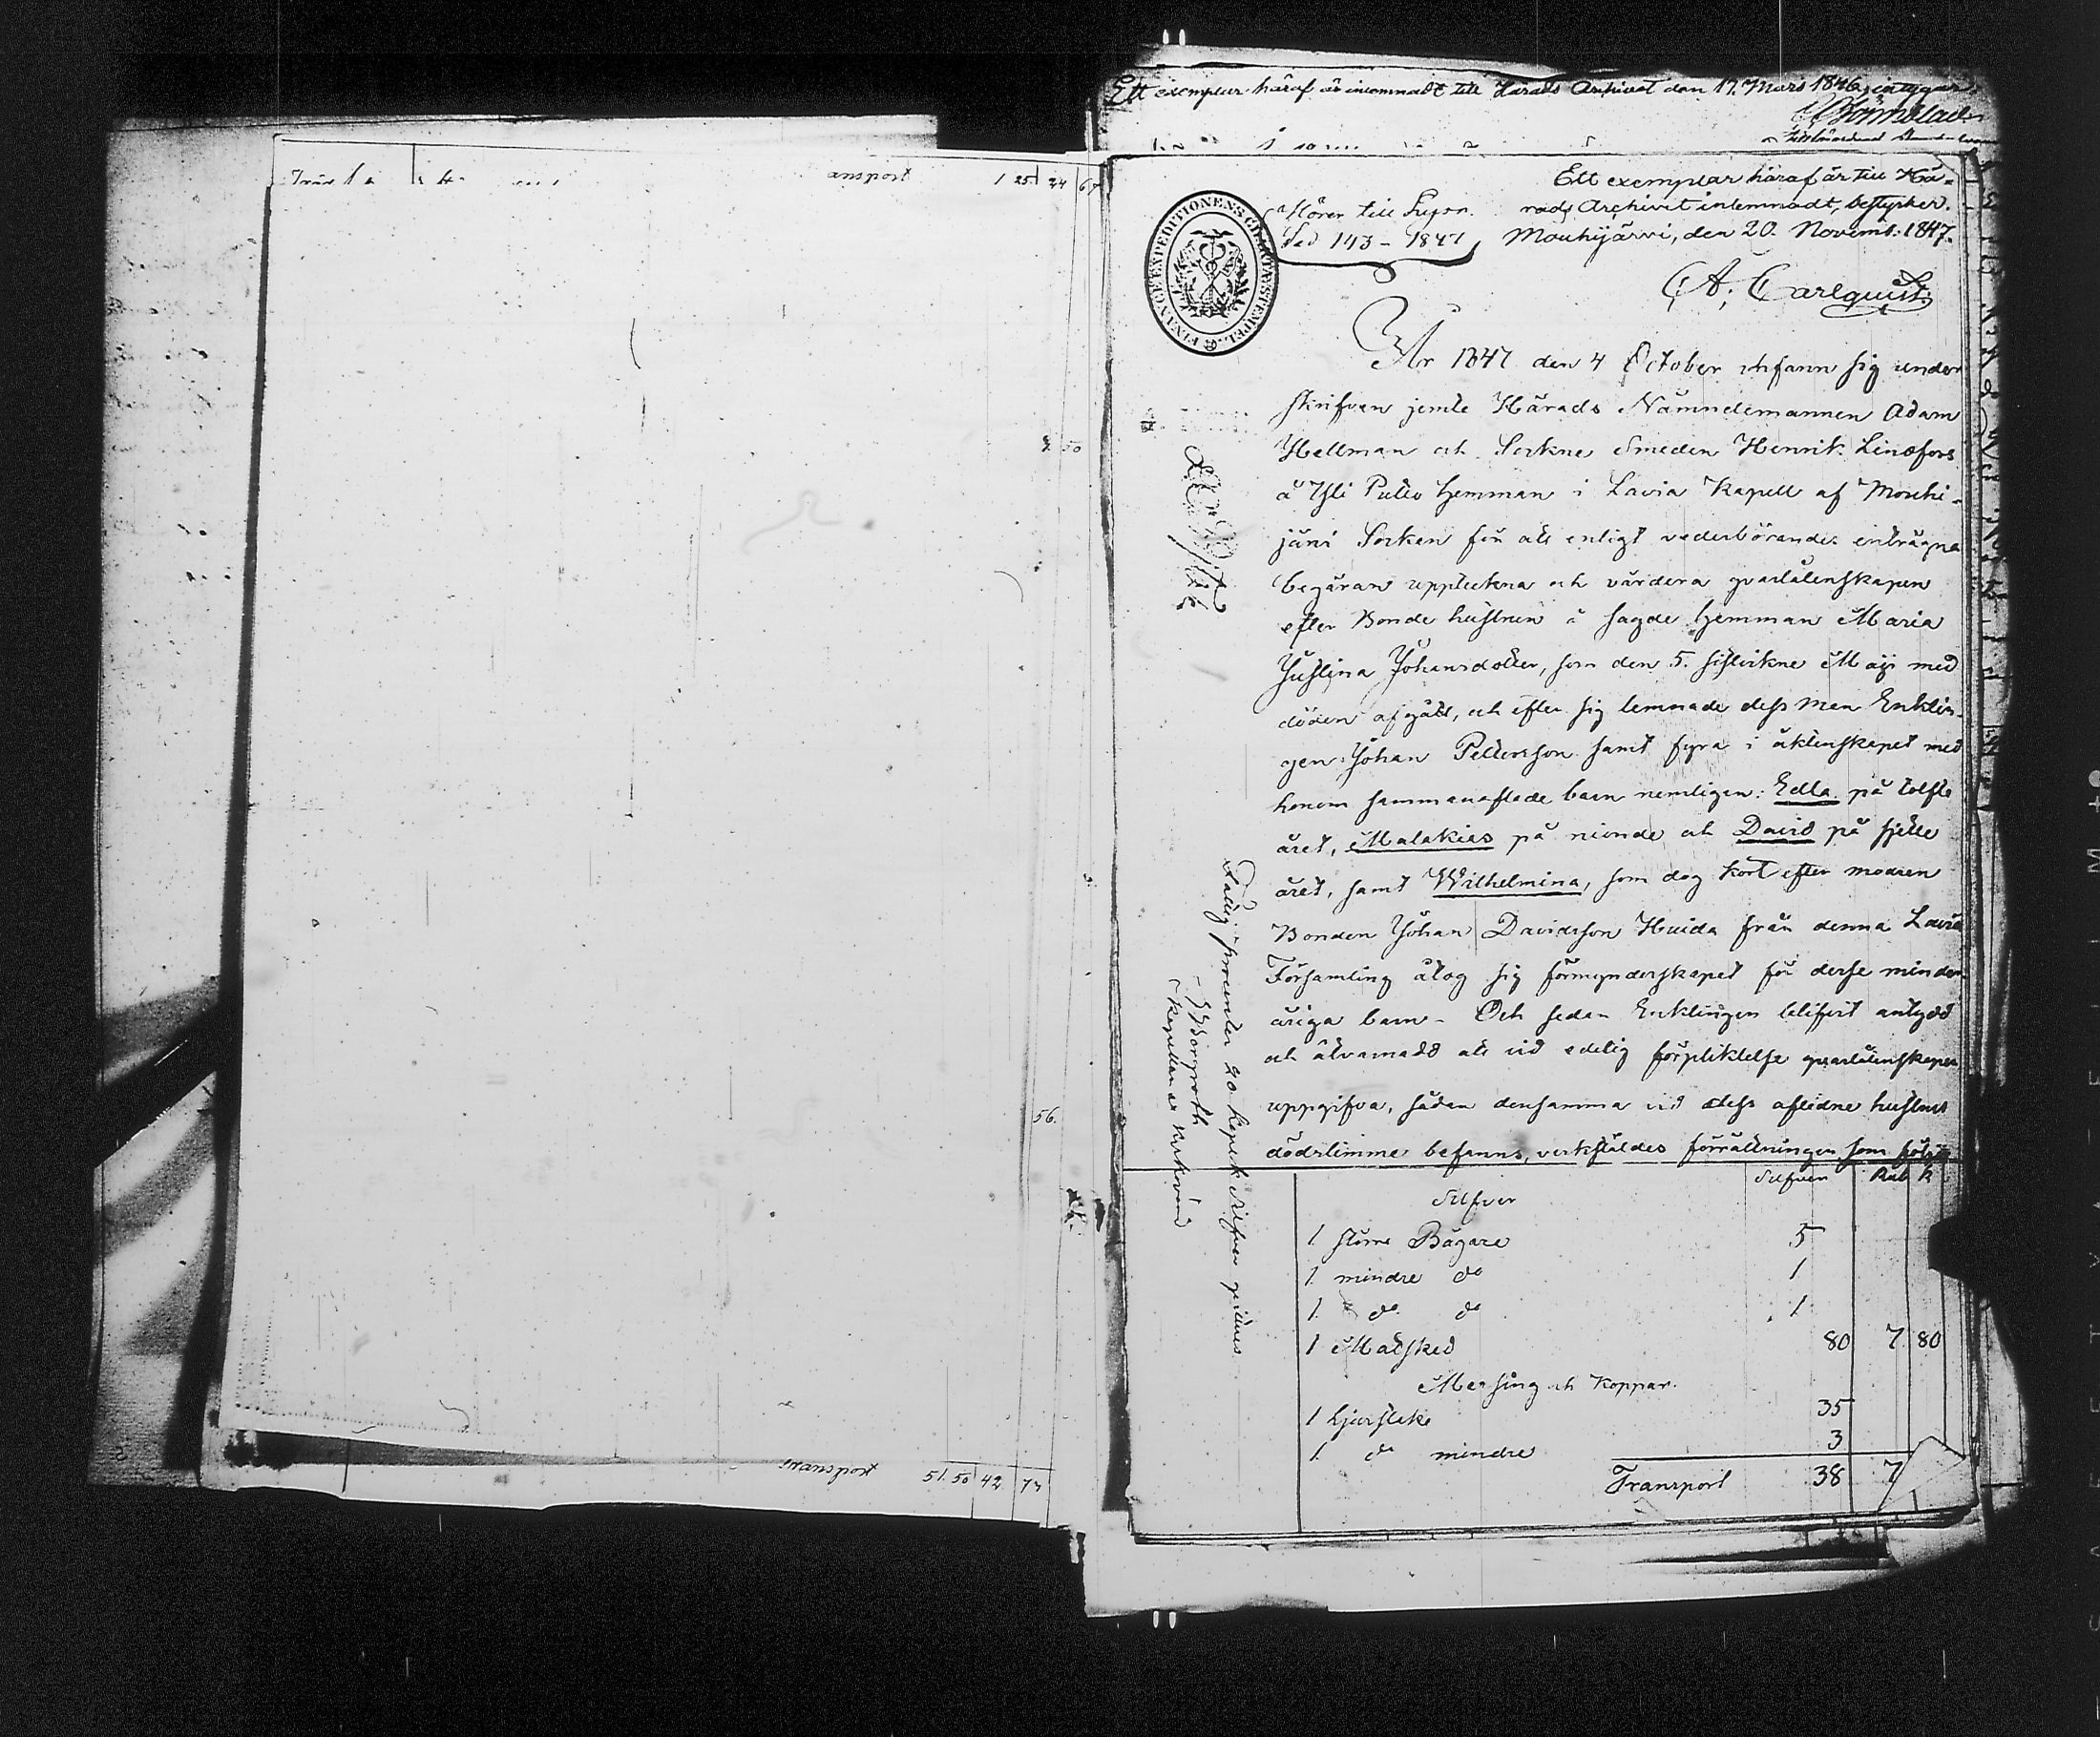 Ett exemplar häraf är inlemnadt till Härads Archivet den 17. Mars 1846, intygar
ansport 1 25. 24 67
2 50
56.
transport 51. 50 42 77
FINANCE EXPEDITIONENS CHARTÆ STEMPEL
Hörer till
143 - 1847
Ett exemplar häraf är till Hä-
rads Archivet inlemnadt, bestyrker.
Mouhijärvi, den 20 Novemb. 1847.
C. A. Carlquist
År 1847 den 4 October infann sig under
skrifven jemte Härads Nämndemannen Adam
Hellman och Sockne Smeden Henrik Lindfors
å Yli Putto hemman i Lavia Kapell af Mouhi-
järvi Socken för att enligt vederbörandes enträgna
begäran uppteckna och värdera qvarlåtenskapen
efter Bonde hustrun å sagde hemman Maria
Justina Johansdotter, som den 5. sistvikne Maji med
döden afgått, och efter sig lemnade dess man Enklin-
gen Johan Pettersson samt fyra i äktenskapet med
honom sammanaflade barn nemligen: Edla på tolfte
året, Malakias på nionde och David på sjette
året, samt Wilhelmina, som dog kort efter modren
Bonden Johan Davidsson Huida från denna Lavia
Församling åtog sig förmynderskapet för desse minder
åriga barn - Och sedan Enklingen blifvit antydd
och åtvarnadd att vid edelig förpliktelse qvarlåtenskapen
uppgifva, sådan densamma vid dess aflidne hustrus
dödstimme befanns, verkstäldes förrättningen som följer
Fattig procenter 20 kopek silfver qvitteras
Borgroth
Kapellan
Silfver Rub K
Silfver
1 större Bägare 5
1 mindre do 1
1 do do 1
1 Matsked 80 7 80
Messing och Koppar.
1 Ljusstake 35
1 do mindre 3
Transport 38 7